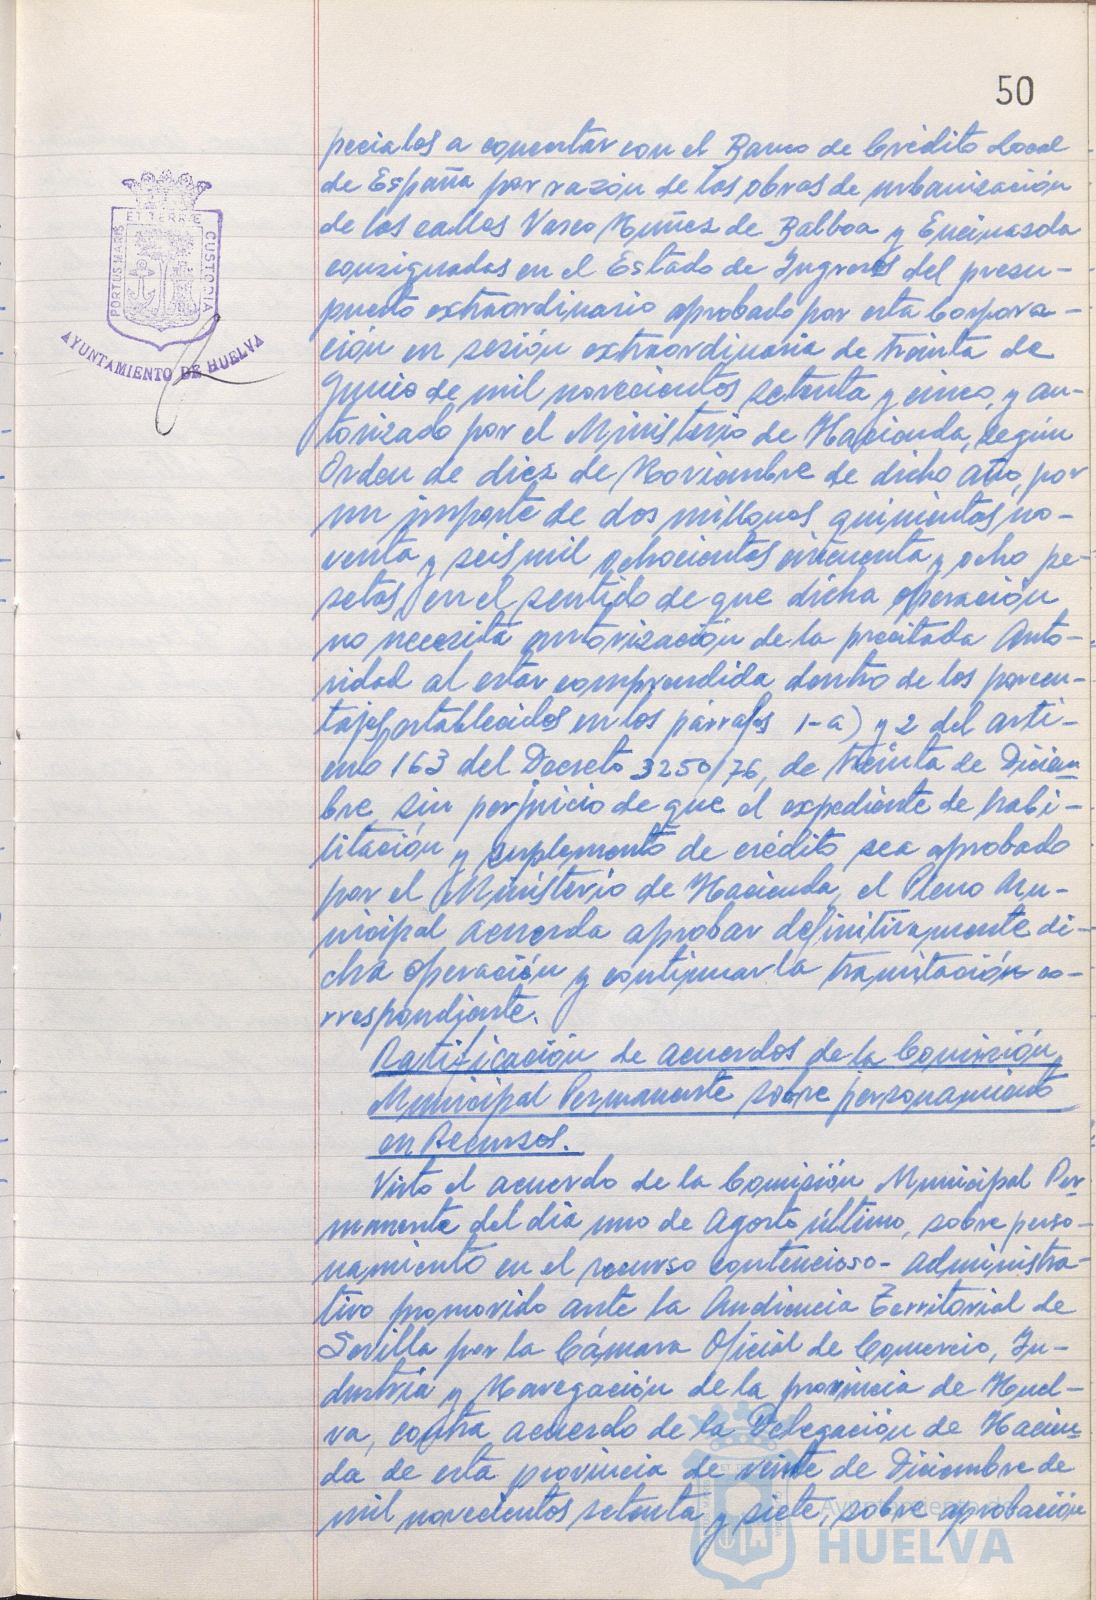 50
peciales a concertar con el Banco de Crédito Local
de España por razón de las obras de urbanización
de las calles Vasco Núñez de Balboa y Encinasola
consignadas en el Estado de Ingresos del presu-
puesto extraordinario aprobado por esta Corpora-
ción en sesión extraordinaria de treinta de
Junio de mil novecientos setenta y cinco, y au-
torizado por el Ministerio de Hacienda, según
Orden de diez de Noviembre de dicho año, por
un importe de dos millones quinientas no-
venta y seis mil ochocientas cincuenta y ocho pe-
setas, en el sentido de que dicha operación
no necesita autorización de la precitada Auto-
ridad al estar comprendida dentro de los porcen-
tajes establecidos en los párrafos 1-a) y 2 del artí-
culo 163 del Decreto 3250/76, de treinta de Diciem-
bre, sin perjuicio de que el expediente de habi-
litación y suplemento de crédito sea aprobado
por el Ministerio de Hacienda, el Pleno Mu-
nicipal acuerda aprobar definitivamente di-
cha operación y continuar la tramitación co-
rrespondiente.
Ratificación de acuerdos de la Comisión
Municipal Permanente sobre personamiento
en Recursos.
Visto el acuerdo de la Comisión Municipal Per-
manente del día uno de Agosto último, sobre perso-
namiento en el recurso contencioso-administra-
tivo promovido ante la Audiencia Territorial de
Sevilla por la Cámara Oficial de Comercio, In-
dustria y Navegación de la provincia de Huel-
va, contra acuerdo de la Delegación de Hacien-
da de esta provincia de veinte de Diciembre de
mil novecientos setenta y siete, sobre aprobación
PORTUS MARIS
ET TERRE
CUSTODIA
AYUNTAMIENTO DE HUELVA
Ayuntamiento de
HUELVA